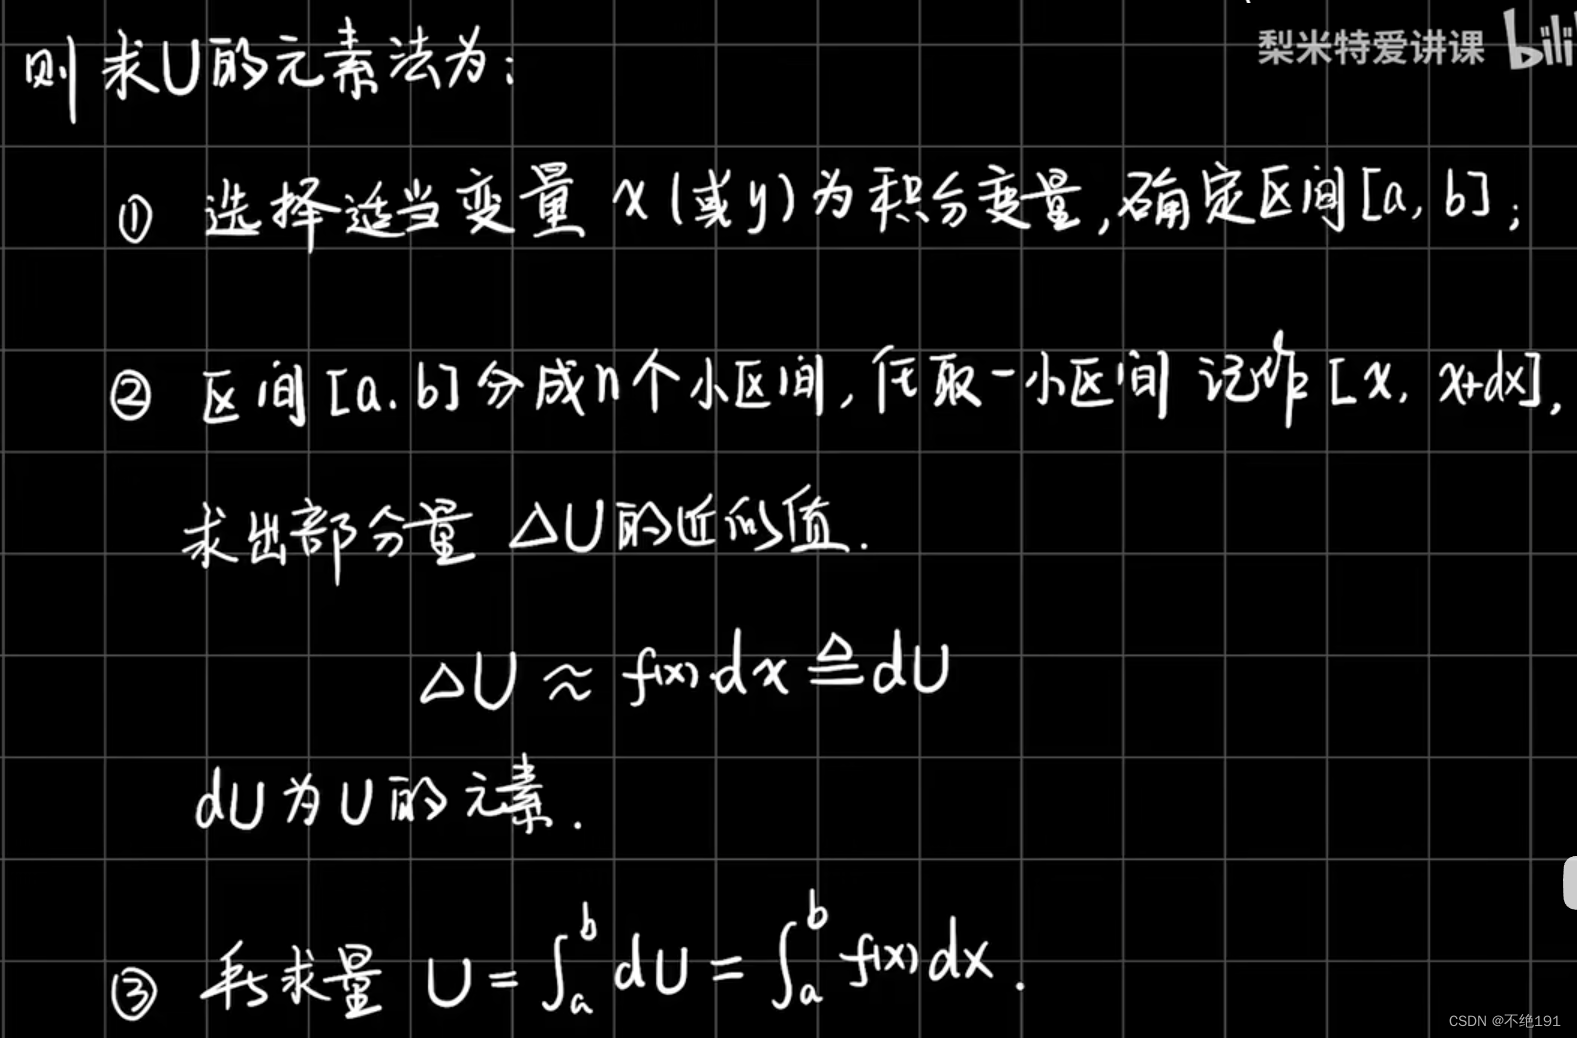 梨米特爱讲课 bili
则求U的元素法为:
① 选择适当变量 x(或y)为积分变量,确定区间[a, b];
② 区间[a.b]分成n个小区间,任取一小区间 记作[x, x+dx],
求出部分量 △U的近似值.
△U ≈ f(x)·dx ≜ dU
dU为U的元素.
③ 所求量 U = ∫ₐᵇ dU = ∫ₐᵇ f(x) dx.
CSDN @不绝191